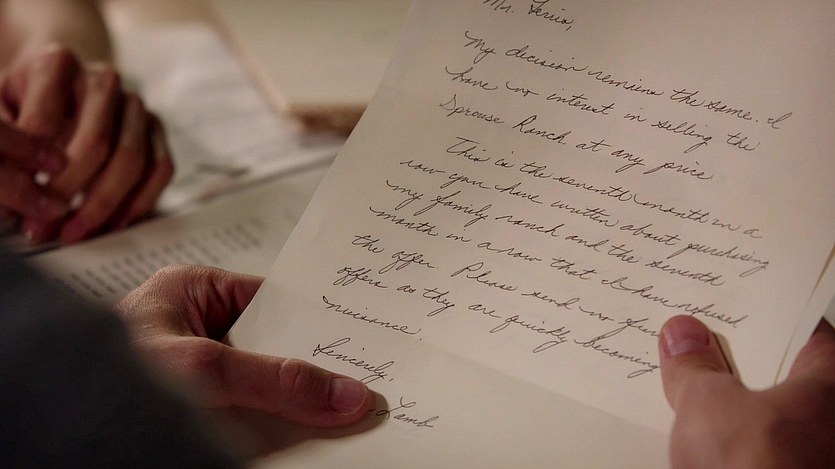 Mr. Ferris,
My decision remains the same. I
have no interest in selling the
Sprouse Ranch at any price
This is the seventh month in a
row you have written about purchasing
my family ranch and the seventh
month in a row that I have refused
the offer. Please send no
offers as they are quickly becoming
nuisance.
Sincerely,
Lamb